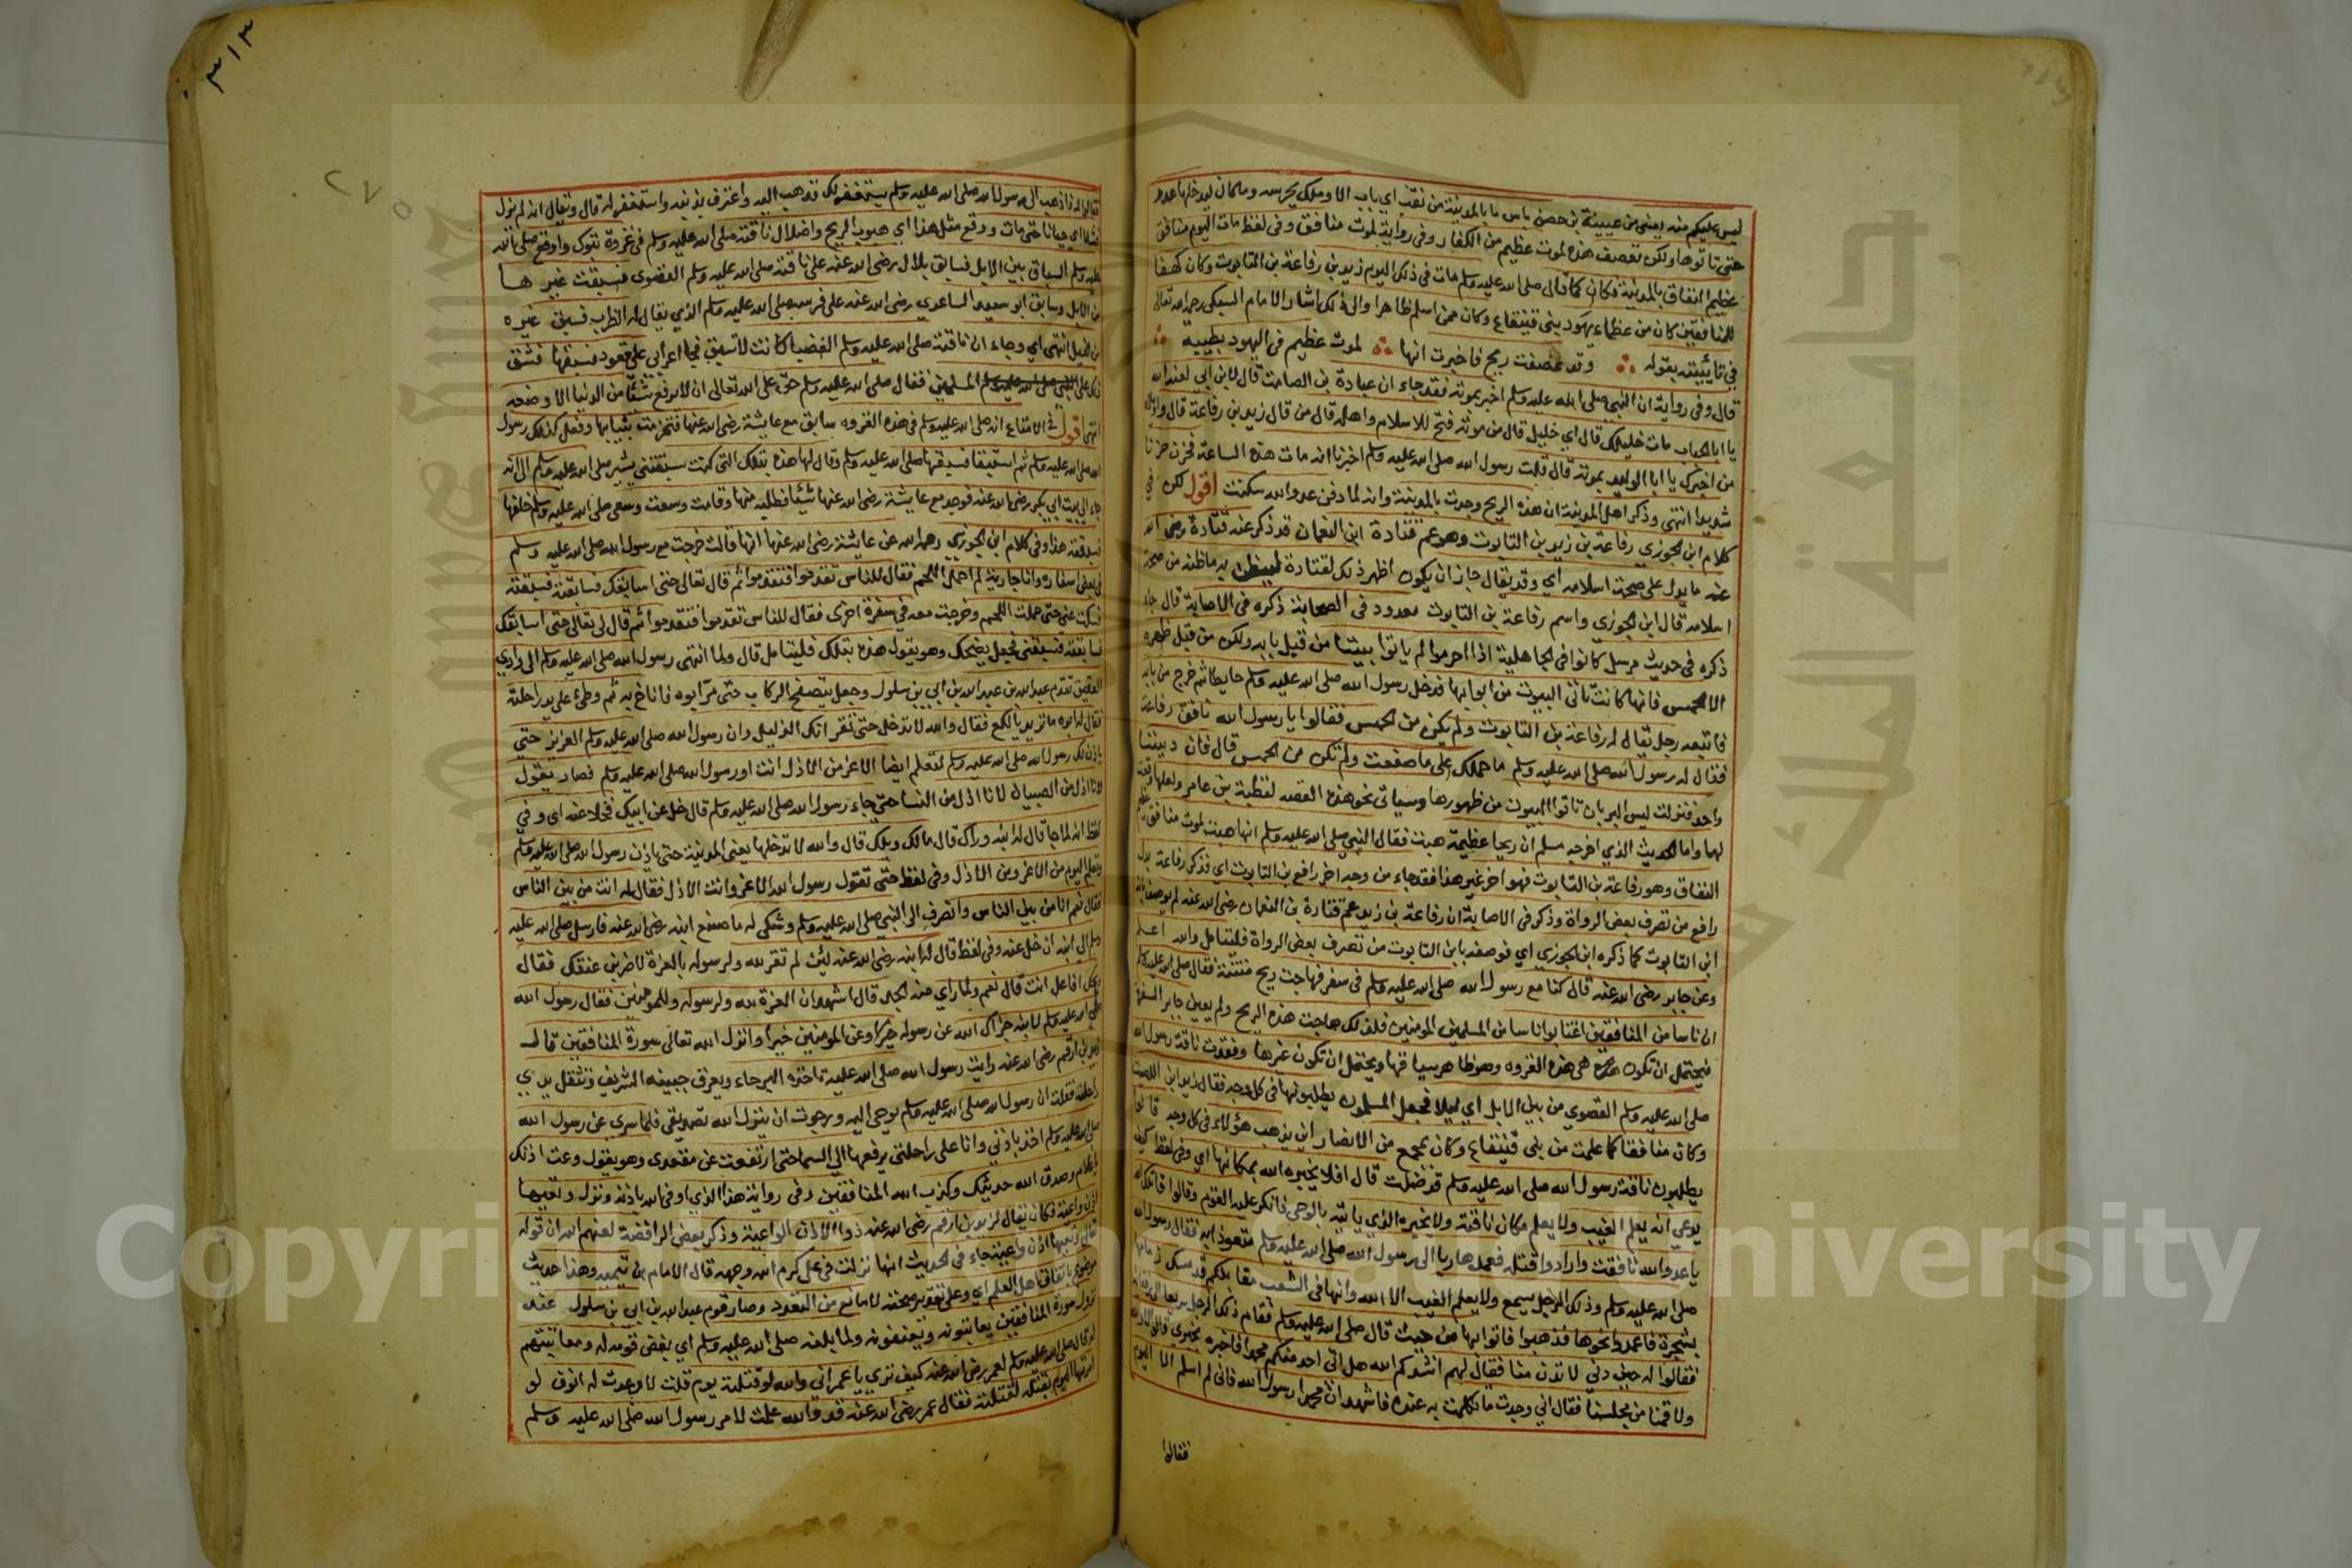 ليس عليكم منه يعني من عيينة بن حصن باس ما بالمدينة من نقب اي باب الا وملك يحرسه وماكان ليدخلها عدو
حتى تاتوها ولكن تعصف هذه لموت عظيم من الكفار وفي رواية لموت منافق وفي لفظ مات اليوم منافق
عظيم النفاق بالمدينة فكان كما قال صلى الله عليه وسلم مات في ذلك اليوم زيد بن رفاعة بن التابوت وكان كهفا
للمنافقين كان من عظماء يهود بني قينقاع وكان ممن اسلم ظاهرا والى ذلك اشار الامام السبكي رحمه الله تعالى
في تائيته بقوله وقد عصفت ريح فاخبرت انها لموت عظيم في اليهود بطيبة
قال وفي رواية ان النبي صلى الله عليه وسلم اخبر بموته فقد جاء ان عبادة بن الصامت قال لابن ابي لعنه الله
يا ابا الحباب مات خليلك قال اي خليل قال من موته فتح للاسلام واهله قال من قال زيد بن رفاعة قال واويلاه
من اخبرك يا ابا الوليد بموته قال قلت رسول الله صلى الله عليه وسلم اخبرنا انه مات هذه الساعة فحزن حزنا
شديدا انتهى وذكر اهل المدينة ان هذه الريح وجدت بالمدينة وانه لما دفن عدو الله سكنت اقول لكن في
كلام ابن الجوزي رفاعة بن زيد بن التابوت وهو عم قتادة ابن النعمان قد ذكر عنه قتادة رضي الله
عنه مايدل على صحة اسلامه اي وقد يقال جاز ان يكون اظهر ذلك لقتادة ليظن به ماظنه من صحة
اسلامه قال ابن الجوزي واسم رفاعة بن التابوت معدود في الصحابة ذكره في الاصابة قال جاء
ذكره في حديث مرسل كانوا في الجاهلية اذا احرموا لم ياتوا بيتا من قبل بابه ولكن من قبل ظهره
الا الحمس فانها كانت تاتي البيوت من ابوابها فدخل رسول الله صلى الله عليه وسلم حايطا ثم خرج من بابه
فاتبعه رجل يقال له رفاعة بن التابوت ولم يكن من الحمس فقالوا يا رسول الله نافق رفاعة
فقال له رسول الله صلى الله عليه وسلم ما حملك على ما صنعت ولم تكن من الحمس قال فان ديننا
واحد فنزلت ليس البر بان تاتوا البيوت من ظهورها وسياتي نحو هذه القصة لقطبة بن عامر ولعلها وقعت
لهما واما الحديث الذي اخرجه مسلم ان ريحا عظيمة هبت فقال النبي صلى الله عليه وسلم انها هبت لموت منافق عظيم
النفاق وهو رفاعة بن التابوت فهو اخر غير هذا فقد جاء من وجه اخر رافع بن التابوت اي فذكر رفاعة بدل
رافع من تصرف بعض الرواة وذكر في الاصابة ان رفاعة بن زيد عم قتادة بن النعمان رضي الله عنه لم يوصف بانه
ابن التابوت كما ذكره ابن الجوزي اي فوصفه بابن التابوت من تصرف بعض الرواة فليتامل والله اعلم
وعن جابر رضي الله عنه قال كنا مع رسول الله صلى الله عليه وسلم في سفر فهاجت ريح منتنة فقال صلى الله عليه وسلم
ان ناسا من المنافقين اغتابوا ناسا من المسلمين المومنين فلذلك هاجت هذه الريح ولم يعين جابر السفرة
فيحتمل ان تكون هي هذه الغزوه وهو ظاهر سياقها ويحتمل ان تكون غيرها وفقدت ناقة رسول الله
صلى الله عليه وسلم القصوي من بين الابل اي ليلا فجعل المسلمون يطلبونها في كل وجه فقال زيد ابن اللصيت
وكان منافقا كما علمت من بني قينقاع وكان بجمع من الانصار اين يذهب هؤلاء في كل وجه قالوا
يطلبون ناقة رسول الله صلى الله عليه وسلم قد ضلت قال افلا يخبره الله بمكانها اي وفي لفظ كيف
يدعي انه يعلم الغيب ولا يعلم مكان ناقته ولا يخبره الذي ياتيه بالوحي فانكر عليه القوم وقالوا قاتلك الله
ياعدو الله نافقت وارادوا قتله فعمد هاربا الى رسول الله صلى الله عليه وسلم متعوذا به فقال رسول الله
صلى الله عليه وسلم وذلك الرجل يسمع ولا يعلم الغيب الا الله وانها في الشعب مقابلكم قد مسك زمامها
بشجرة فاعمدوا نحوها فذهبوا فاتوا بها من حيث قال صلى الله عليه وسلم فقام ذلك الرجل
فقالوا له حين دني لا تدن منا فقال لهم انشدكم الله هل اتى احد منكم محمدا فاخبره بخبري قالوا لا والله
ولا قمنا من مجلسنا فقال اني وجدت ما تكلمت به عنده فاشهد ان محمدا رسول الله فاني لم اسلم الا اليوم
فقالوا
٣١٣
٢٧٥
فقالوا له فاذهب الى رسول الله صلى الله عليه وسلم يستغفر لك فذهب اليه واعترف بذنبه واستغفر له قال ويقال انه لم يزل
فشلا اي جبانا حتى مات ووقع مثل هذا اي هبوب الريح واضلال ناقته صلى الله عليه وسلم في غزوة تبوك واوقع صلى الله
عليه وسلم السباق بين الابل فسابق بلال رضي الله عنه على ناقته صلى الله عليه وسلم القصوى فسبقت غيرها
من الابل وسابق ابو سعيد الساعدي رضي الله عنه على فرسه صلى الله عليه وسلم الذي يقال له الظرب فسبق غيره
من الخيل انتهى اي وجاء ان ناقته صلى الله عليه وسلم العضبا كانت لا تسبق فجا اعرابي على قعود فسبقها فشق
ذلك على المسلمين فقال صلى الله عليه وسلم حق على الله تعالى ان لا يرفع شيئا من الدنيا الا وضعه
انتهى اقول في الامتاع انه صلى الله عليه وسلم في هذه الغزوه سابق مع عايشة رضي الله عنها فتحزمت بثيابها وفعل كذلك رسول
الله صلى الله عليه وسلم ثم استبقا فسبقها صلى الله عليه وسلم وقال لها هذه بتلك التي كنت سبقتني يشير صلى الله عليه وسلم الى انه
جاء الى بيت ابي بكر رضي الله عنه فوجد مع عايشة رضي الله عنها شيئا فطلبه منها وقامت وسعت وسعى صلى الله عليه وسلم خلفها
فسبقته هذا وفي كلام ابن الجوزي رحمه الله عن عايشة رضي الله عنها انها قالت خرجت مع رسول الله صلى الله عليه وسلم
في بعض اسفاره وانا جارية لم احمل اللحم فقال للناس تقدموا فتقدموا ثم قال تعالى حتى اسابقك فسابقته فسبقته
فسكت عني حتى حملت اللحم وخرجت معه في سفرة اخرى فقال للناس تقدموا فتقدموا ثم قال لي تعالى حتى اسابقك
فسابقته فسبقني فجعل يضحك وهو يقول هذه بتلك فليتامل قال ولما انتهى رسول الله صلى الله عليه وسلم الى وادي
العقيق تقدم عبد الله بن عبد الله بن ابي بن سلول وجعل يتصفح الركاب حتى مر ابوه فاناخ به ثم وطئ على يد راحلته
فقال له ابوه ما تريد يا لكع فقال والله لا تدخل حتى تقر انك الذليل وان رسول الله صلى الله عليه وسلم العزيز حتى
ياذن لك رسول الله صلى الله عليه وسلم لتعلم ايضا الاعز من الاذل انت او رسول الله صلى الله عليه وسلم فصار يقول
لانا اذل من الصبيان لانا اذل من النسا حتى جاء رسول الله صلى الله عليه وسلم قال خل عن ابيك فخلا عنه اي وفي
لفظ انه لما جا قال له ابنه وراك قال مالك ويلك قال والله لا تدخلها يعني المدينة حتى ياذن رسول الله صلى الله عليه وسلم
وتعلم اليوم من الاعز ومن الاذل وفي لفظ حتى تقول رسول الله الاعز وانت الاذل فقال له انت من بين الناس
فقال نعم انا من بين الناس وانصرف الى النبي صلى الله عليه وسلم وشكى له ما صنع ابنه رضي الله عنه فارسل صلى الله عليه
وسلم الى ابنه ان خل عنه وفي لفظ قال له ابنه رضي الله عنه لئن لم تقر لله ولرسوله بالعزة لاضربن عنقك فقال
ويحك افاعل انت قال نعم ولما راي منه الجد قال اشهد ان العزة لله ولرسوله وللمومنين فقال رسول الله
صلى الله عليه وسلم لابنه جزاك الله عن رسوله خيرا وعن المومنين خيرا وانزل الله تعالى سورة المنافقين قال
زيد بن ارقم رضي الله عنه رايت رسول الله صلى الله عليه تاخذه البرحاء ويعرق جبينه الشريف وتثقل يدي
راحلته فقلت ان رسول الله صلى الله عليه وسلم يوحى اليه ورجوت ان ينزل الله تصديقي فلما سري عن رسول الله
صلى الله عليه وسلم اخذ باذني وانا على راحلتي يرفعها الى السما حتى ارتفعت عن مقعدي وهو يقول وعت اذنك
يا غلام وصدق الله حديثك وكذب الله المنافقين وفي رواية هذا الذي اوفى الله باذنه ونزل وتعيها
اذن واعية فكان يقال لزيد بن ارقم رضي الله عنه ذو الاذن الواعية وذكر بعض الرافضة لعنهم الله ان قوله
تعالى وتعيها اذن واعية جاء في الحديث انها نزلت في علي كرم الله وجهه قال الامام ابن تيميه وهذا حديث
موضوع باتفاق اهل العلم اي وعلى تقدير صحته لا مانع من التعدد وصار قوم عبد الله بن ابي بن سلول عند
نزول سورة المنافقين يعاتبونه ويعنفونه ولما بلغه صلى الله عليه وسلم اي بغض قومه له ومعاتبتهم
له قال صلى الله عليه وسلم لعمر رضي الله عنه كيف ترى يا عمر اني والله لو قتلته يوم قلت لارعدت له انوف لو
امرتها اليوم بقتله لقتلته فقال عمر رضي الله عنه قد والله علمت لامر رسول الله صلى الله عليه وسلم
Copyright © King Saud University
جامعة الملك سعود